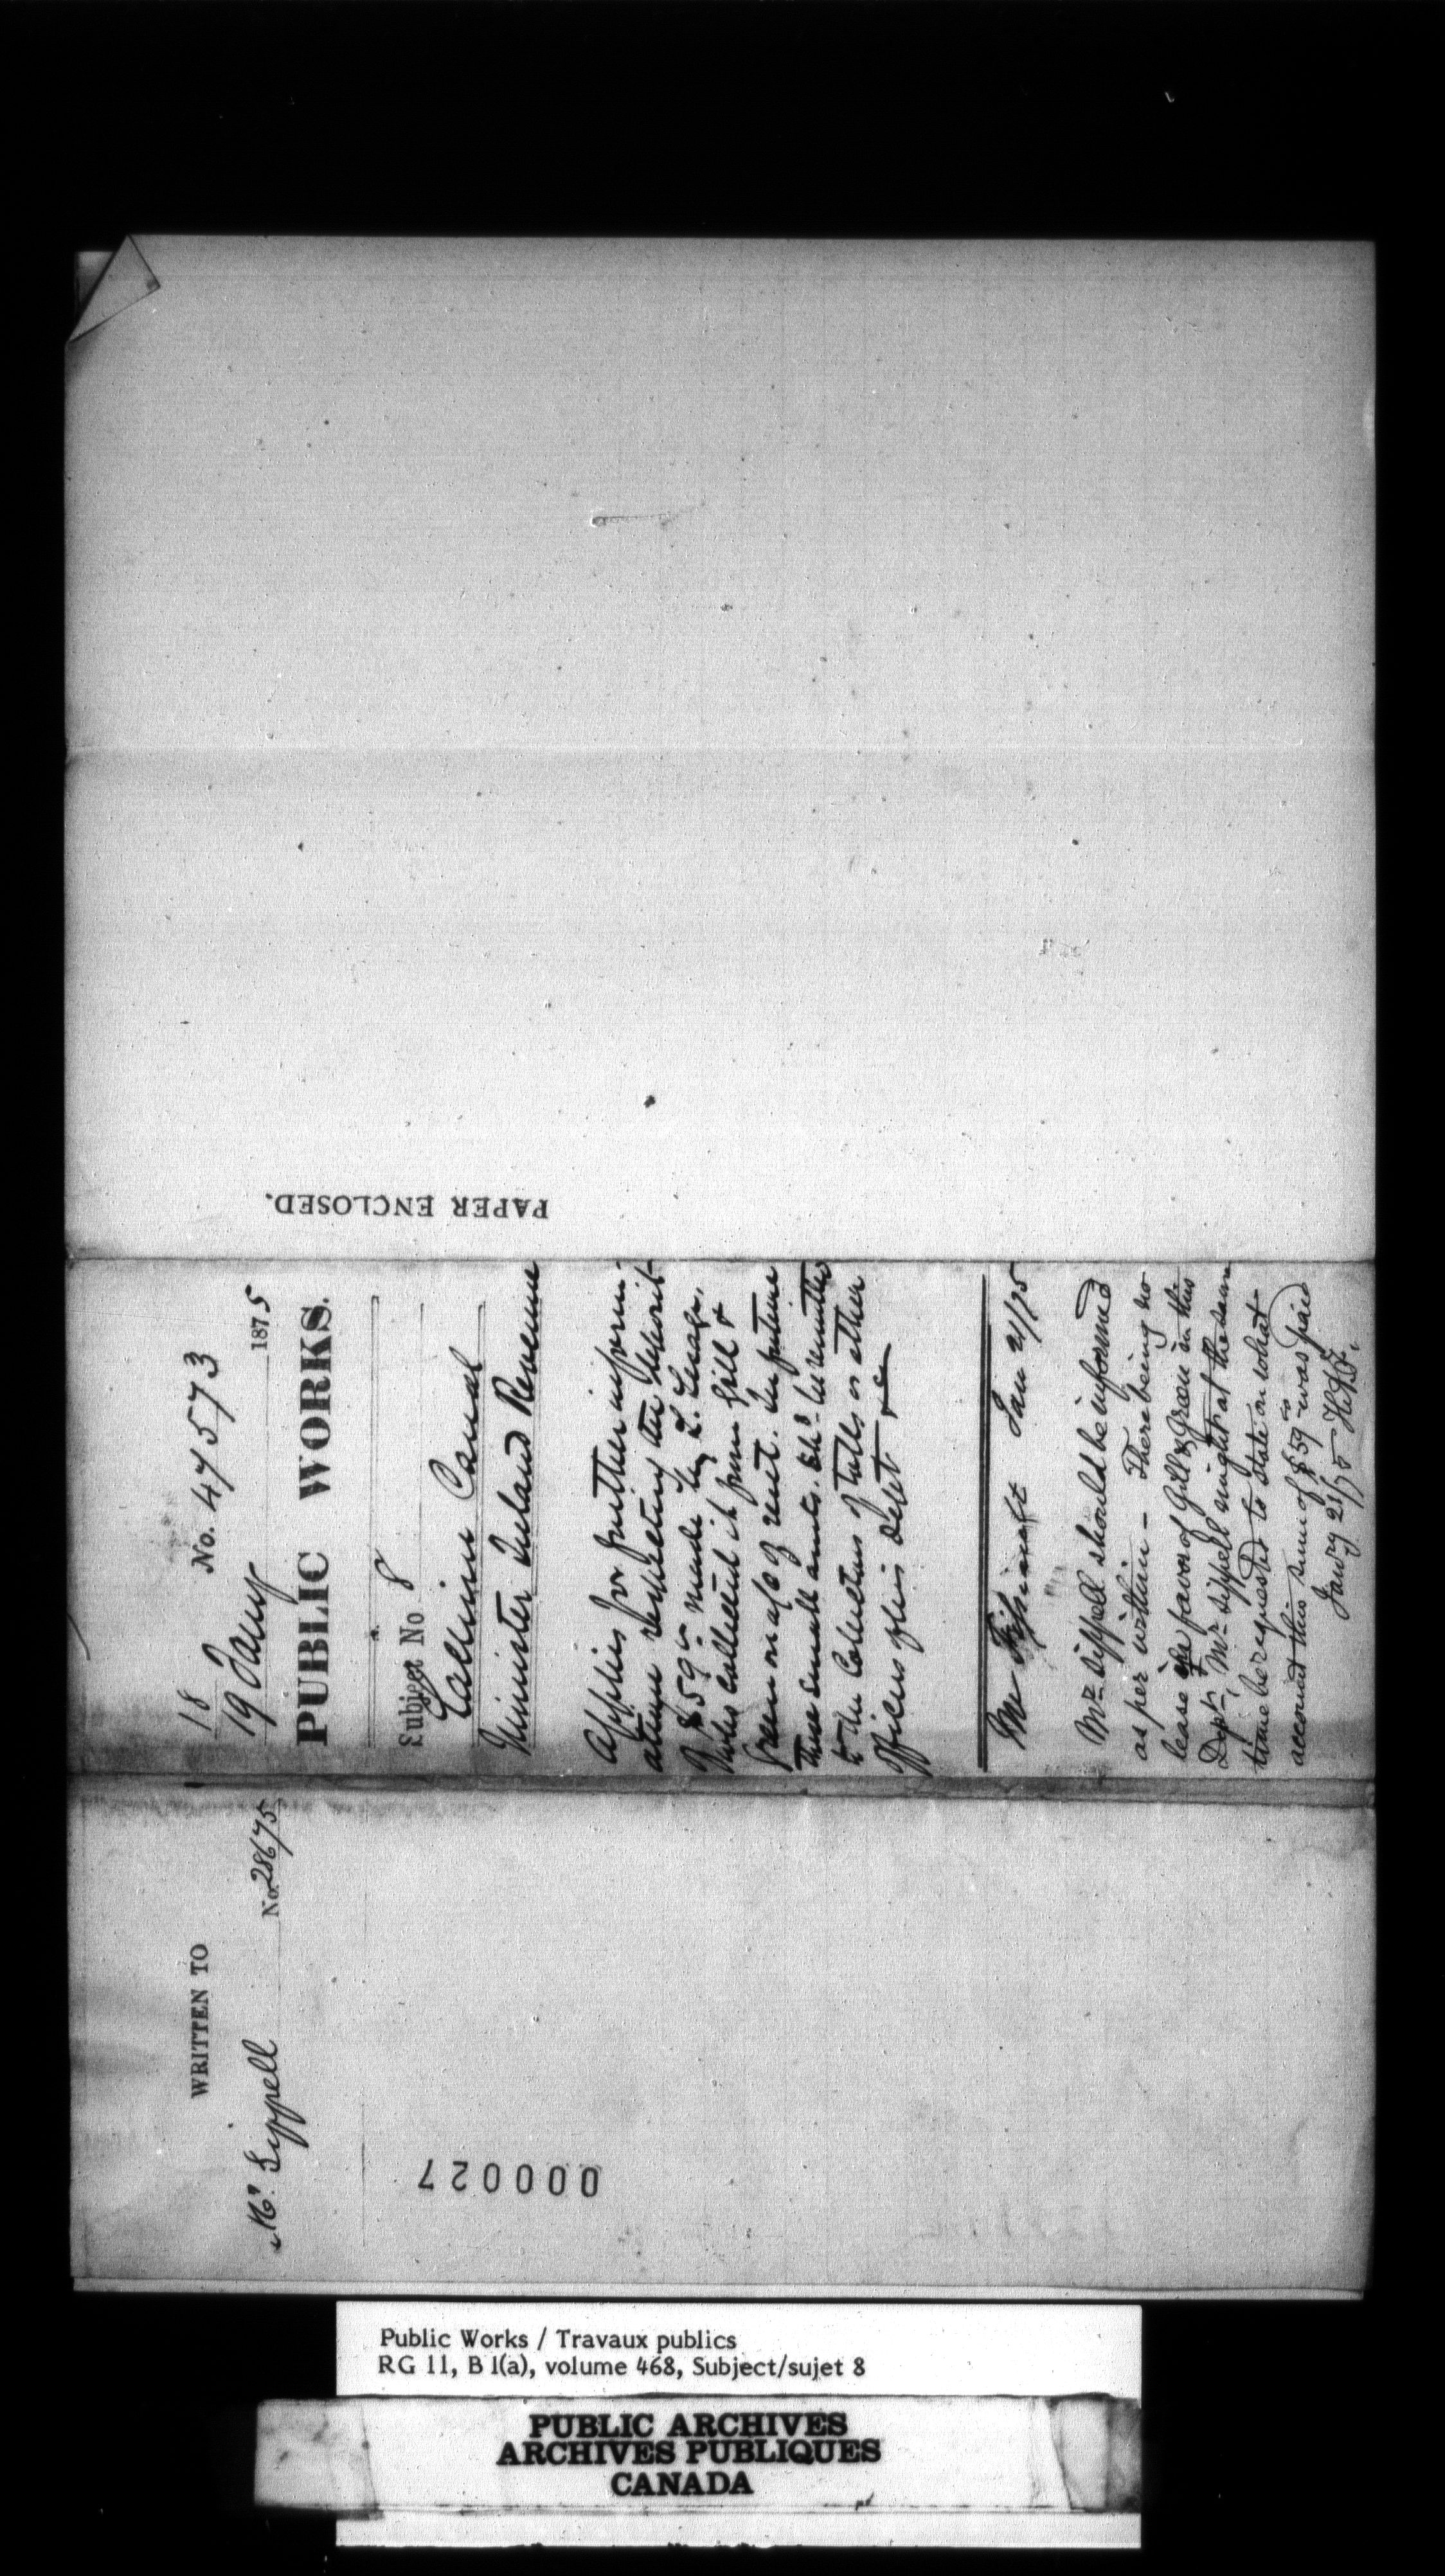 18 No. 47573
19 Jany 1875
PUBLIC WORKS.
Subject No 8
Lachine Canal
Minister Inland Revenue
Applies for further inform-
ation respecting the deposit
of $59 made by L. Lesage.
Was collected it from Gill &
Green on a/c of rent. In future
these small amts. shd. be remitted
to the Collectors of tolls or other
officers of this Dept &c
Mr Jan 21/75
Mr Sippell should be informed
as per within – There being no
lease in favor of Gill & Green in this
Dept, Mr Sippell might at the same
time be requested to state on what
account this sum of $59 was paid
Jany 21/75
WRITTEN TO
Mr. Sippell No. 28675
PAPER ENCLOSED.
000027
Public Works / Travaux publics
RG 11, B 1(a), volume 468, Subject/sujet 8
PUBLIC ARCHIVES
ARCHIVES PUBLIQUES
CANADA